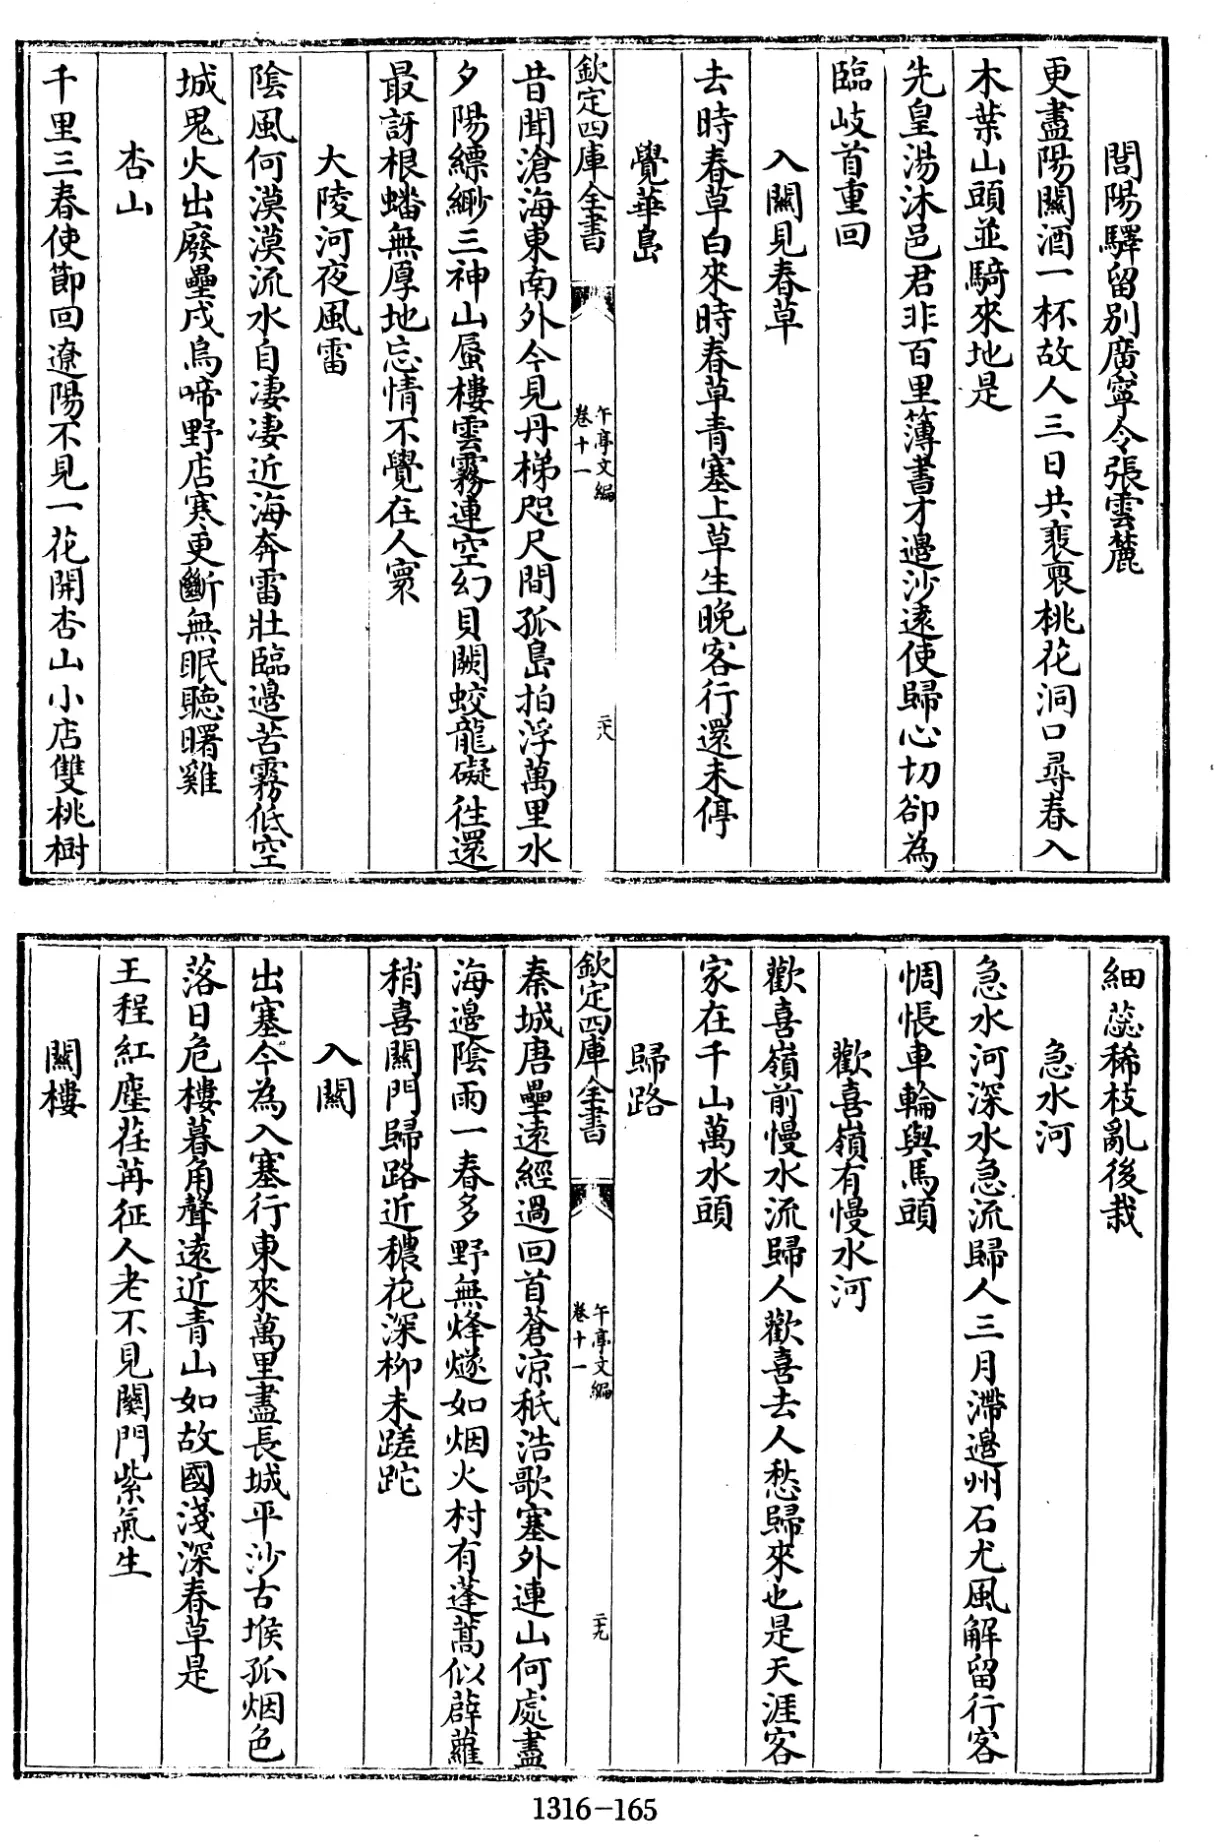 閭陽驛留別廣寧令張雲麓
更盡陽關酒一杯故人三日共裴褱桃花洞口尋春入
木葉山頭並騎來地是
先皇湯沐邑君非百里簿書才邊沙遠使歸心切卻為
臨岐首重回
入關見春草
去時春草白來時春草青塞上草生晚客行還未停
覺華島
欽定四庫全書
午亭文編
卷十一
二十八
昔聞滄海東南外今見丹梯咫尺間孤島拍浮萬里水
夕陽縹緲三神山蜃樓雲霧連空幻貝闕蛟龍礙往還
最訝根蟠無厚地忘情不覺在人寰
大陵河夜風雷
陰風何漠漠流水自凄凄近海奔雷壯臨邊苦霧低空
城鬼火出廢壘戍烏啼野店寒更斷無眠聽曙雞
杏山
千里三春使節回遼陽不見一花開杏山小店雙桃樹
細蕊稀枝亂後栽
急水河
急水河深水急流歸人三月滯邊州石尤風解留行客
惆悵車輪與馬頭
歡喜嶺有慢水河
歡喜嶺前慢水流歸人歡喜去人愁歸來也是天涯客
家在千山萬水頭
歸路
欽定四庫全書
午亭文編
卷十一
二十九
秦城唐壘遠經過回首蒼涼秖浩歌塞外連山何處盡
海邊陰雨一春多野無烽燧如烟火村有蓬蒿似薜蘿
稍喜關門歸路近穠花深柳未蹉跎
入關
出塞今為入塞行東來萬里盡長城平沙古堠孤烟色
落日危樓暮角聲遠近青山如故國淺深春草是
王程紅塵荏苒征人老不見關門紫氣生
關樓
1316-165